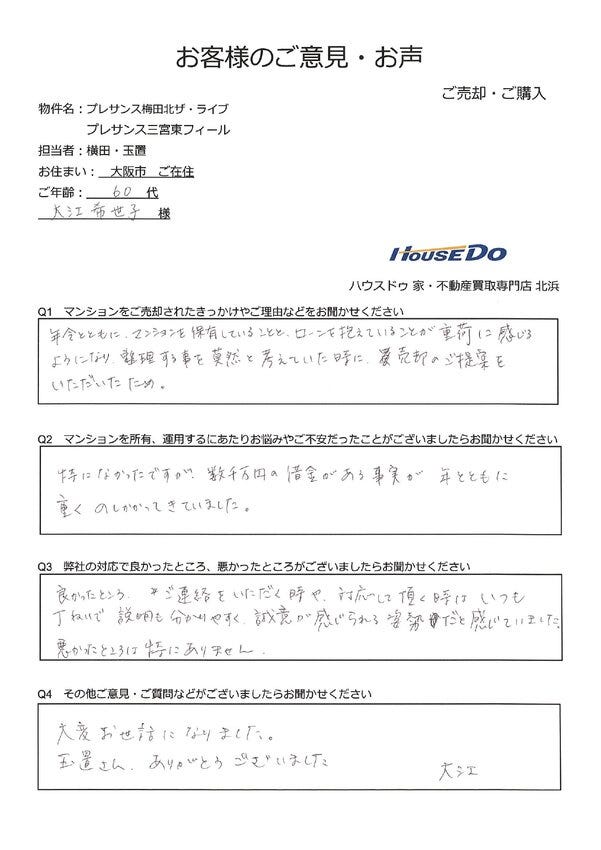 お客様のご意見・お声
ご売却・ご購入
物件名：プレサンス梅田北ザ・ライブ
プレサンス三宮東フィール
担当者：横田・玉置
お住まい： 大阪市 ご在住
ご年齢： 60 代
大江希世子 様
HOUSEDO
ハウスドゥ 家・不動産買取専門店 北浜
Q1 マンションをご売却されたきっかけやご理由などをお聞かせください
年令とともに、マンションを保有していることと、ローンを抱えていることが重荷に感じる
ようになり、整理する事を莫然と考えていた時に、売却のご提案を
いただいたため。
Q2 マンションを所有、運用するにあたりお悩みやご不安だったことがございましたらお聞かせください
特になかったですが、数千万円の借金がある事実が 年とともに
重く のしかかってきていました。
Q3 弊社の対応で良かったところ、悪かったところがございましたらお聞かせください
良かったところ ご連絡をいただく時や、対応して頂く時は いつも
丁ねいで 説明も分かりやすく、誠意が感じられる姿勢だと感じていました。
悪かったところは特にありません.
Q4 その他ご意見・ご質問などがございましたらお聞かせください
大変お世話になりました。
玉置さん、ありがとうございました
大江